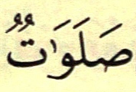 صَلَوٰتٌ